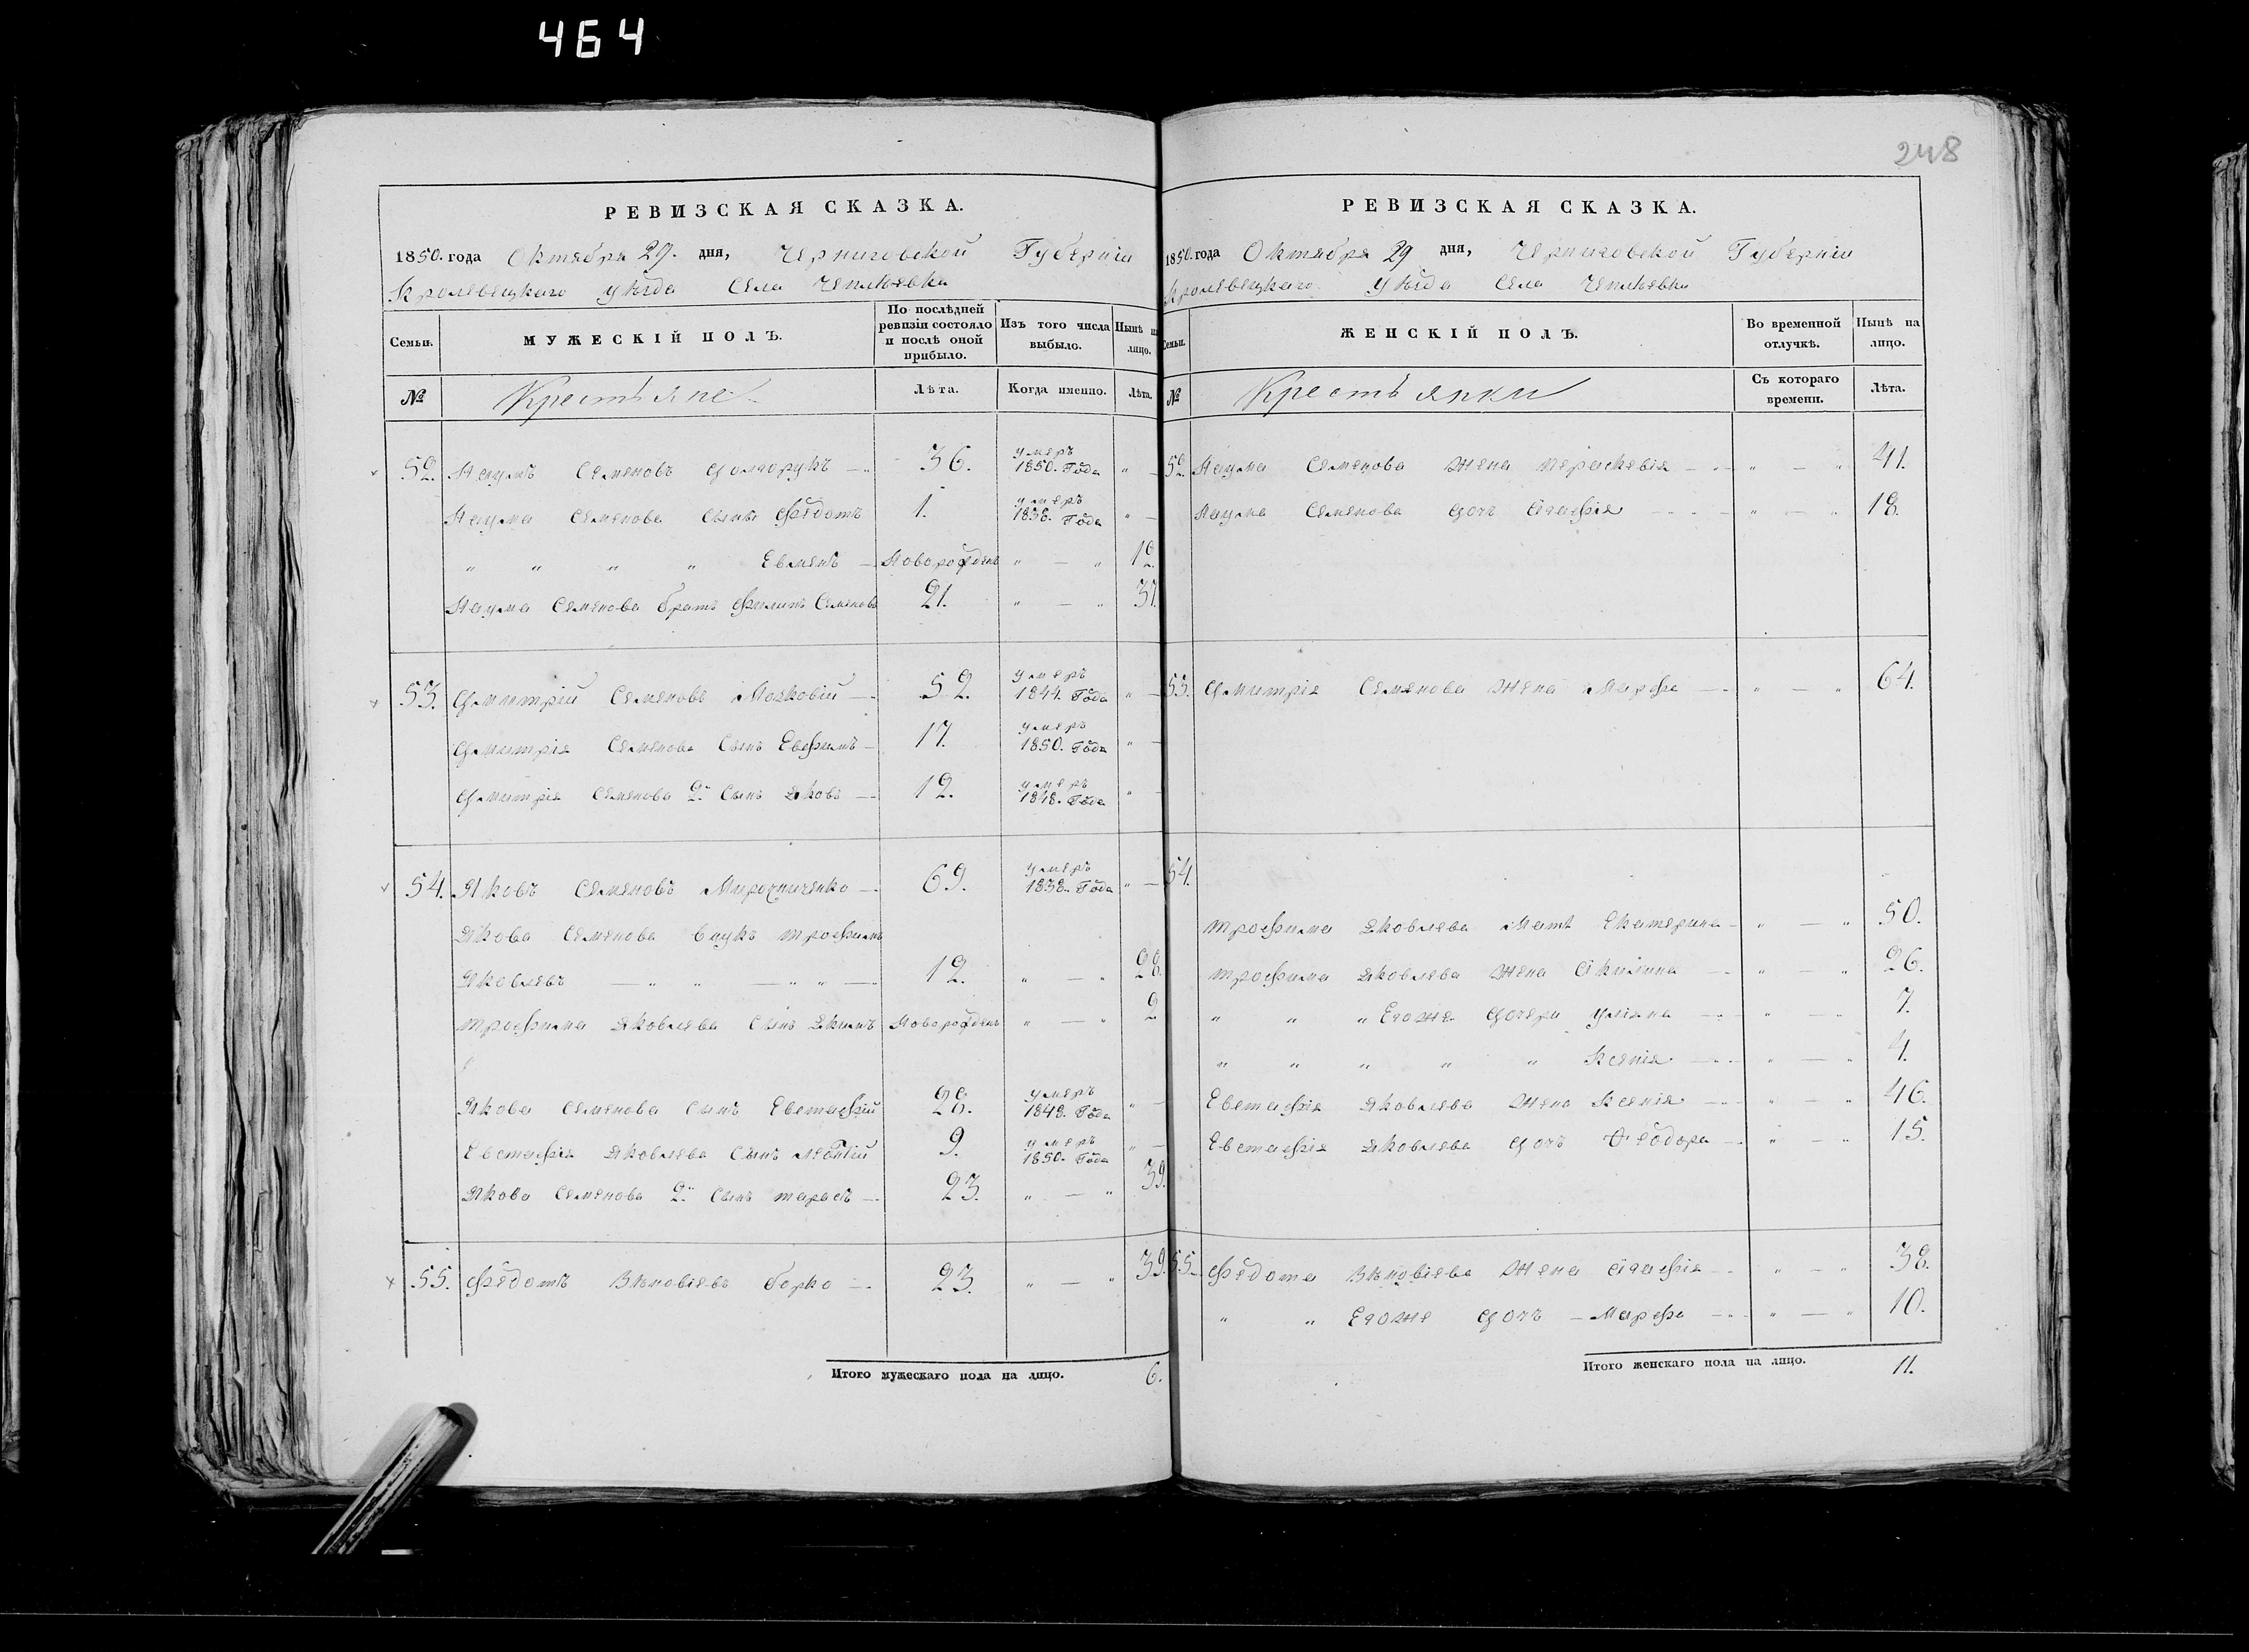 464
248
РЕВИЗСКАЯ СКАЗКА.
1850. года Октября 29. дня, Черниговской Губерніи
Кролевецкаго уѣзда Села Чеплѣевки
Семьи. МУЖЕСКІЙ ПОЛЪ. По послѣдней ревизіи состояло и послѣ оной прибыло. Изъ того числа выбыло. Нынѣ на лицо.
№ Крестьяне Лѣта. Когда именно. Лѣта.
52. Наумъ Семеновъ Долгорукъ — 36. умеръ 1850. Года " —
Наума Семенова Сынъ Федотъ 1. умеръ 1838. Года " —
" " " " Евменъ — Новорожденъ " — " 12.
Наума Семенова братъ Филипъ Семеновъ 21. " — " 37.
53. Дмитрій Семеновъ — 52. умеръ 1844. Года " —
Дмитрія Семенова Сынъ Евфимъ — 17. умеръ 1850. Года " —
Дмитрія Семенова 2й Сынъ Яковъ — 12. умеръ 1848. Года " —
54. Яковъ Семеновъ Мирошниченко — 69. умеръ 1838. Года " —
Якова Семенова внукъ Трофимъ
Яковлевъ — " " — " " — 12. " — " 28.
Трофима Яковлева Сынъ Якимъ Новорожденъ " — " 2.
Якова Семенова Сынъ Евстафій 28. умеръ 1848. Года " —
Евстафія Яковлева Сынъ Леонтій 9. умеръ 1850. Года " —
Якова Семенова 2й Сынъ Тарасъ — 23. " — " 39.
55. Федотъ Борко — 23. " — " 39.
Итого мужескаго пола на лицо. 6.
РЕВИЗСКАЯ СКАЗКА.
1850. года Октября 29 дня, Черниговской Губерніи
Кролевецкаго уѣзда Села Чеплѣевки
Семьи. ЖЕНСКІЙ ПОЛЪ. Во временной отлучкѣ. Нынѣ на лицо.
№ Крестьянки Съ котораго времени. Лѣта.
52. Наума Семенова Жена Параскевія — " — " 41.
Наума Семенова Дочь Агафія — " — " 18.
53. Дмитрія Семенова Жена Марфа — " — " 64.
54.
Трофима Яковлева Мать Екатерина — " — " 50.
Трофима Яковлева Жена Акилина — " — " 26.
" " " Егоже Дочери Уліяна — " — " 7.
" " " " " Ксенія — " — " 4.
Евстафія Яковлева Жена Ксенія — " — " 46.
Евстафія Яковлева Дочь Ѳеодора — " — " 15.
55. Федота Жена Агафія — " — " 38.
" " Егоже Дочь — Марфа — " — " 10.
Итого женскаго пола на лицо. 11.